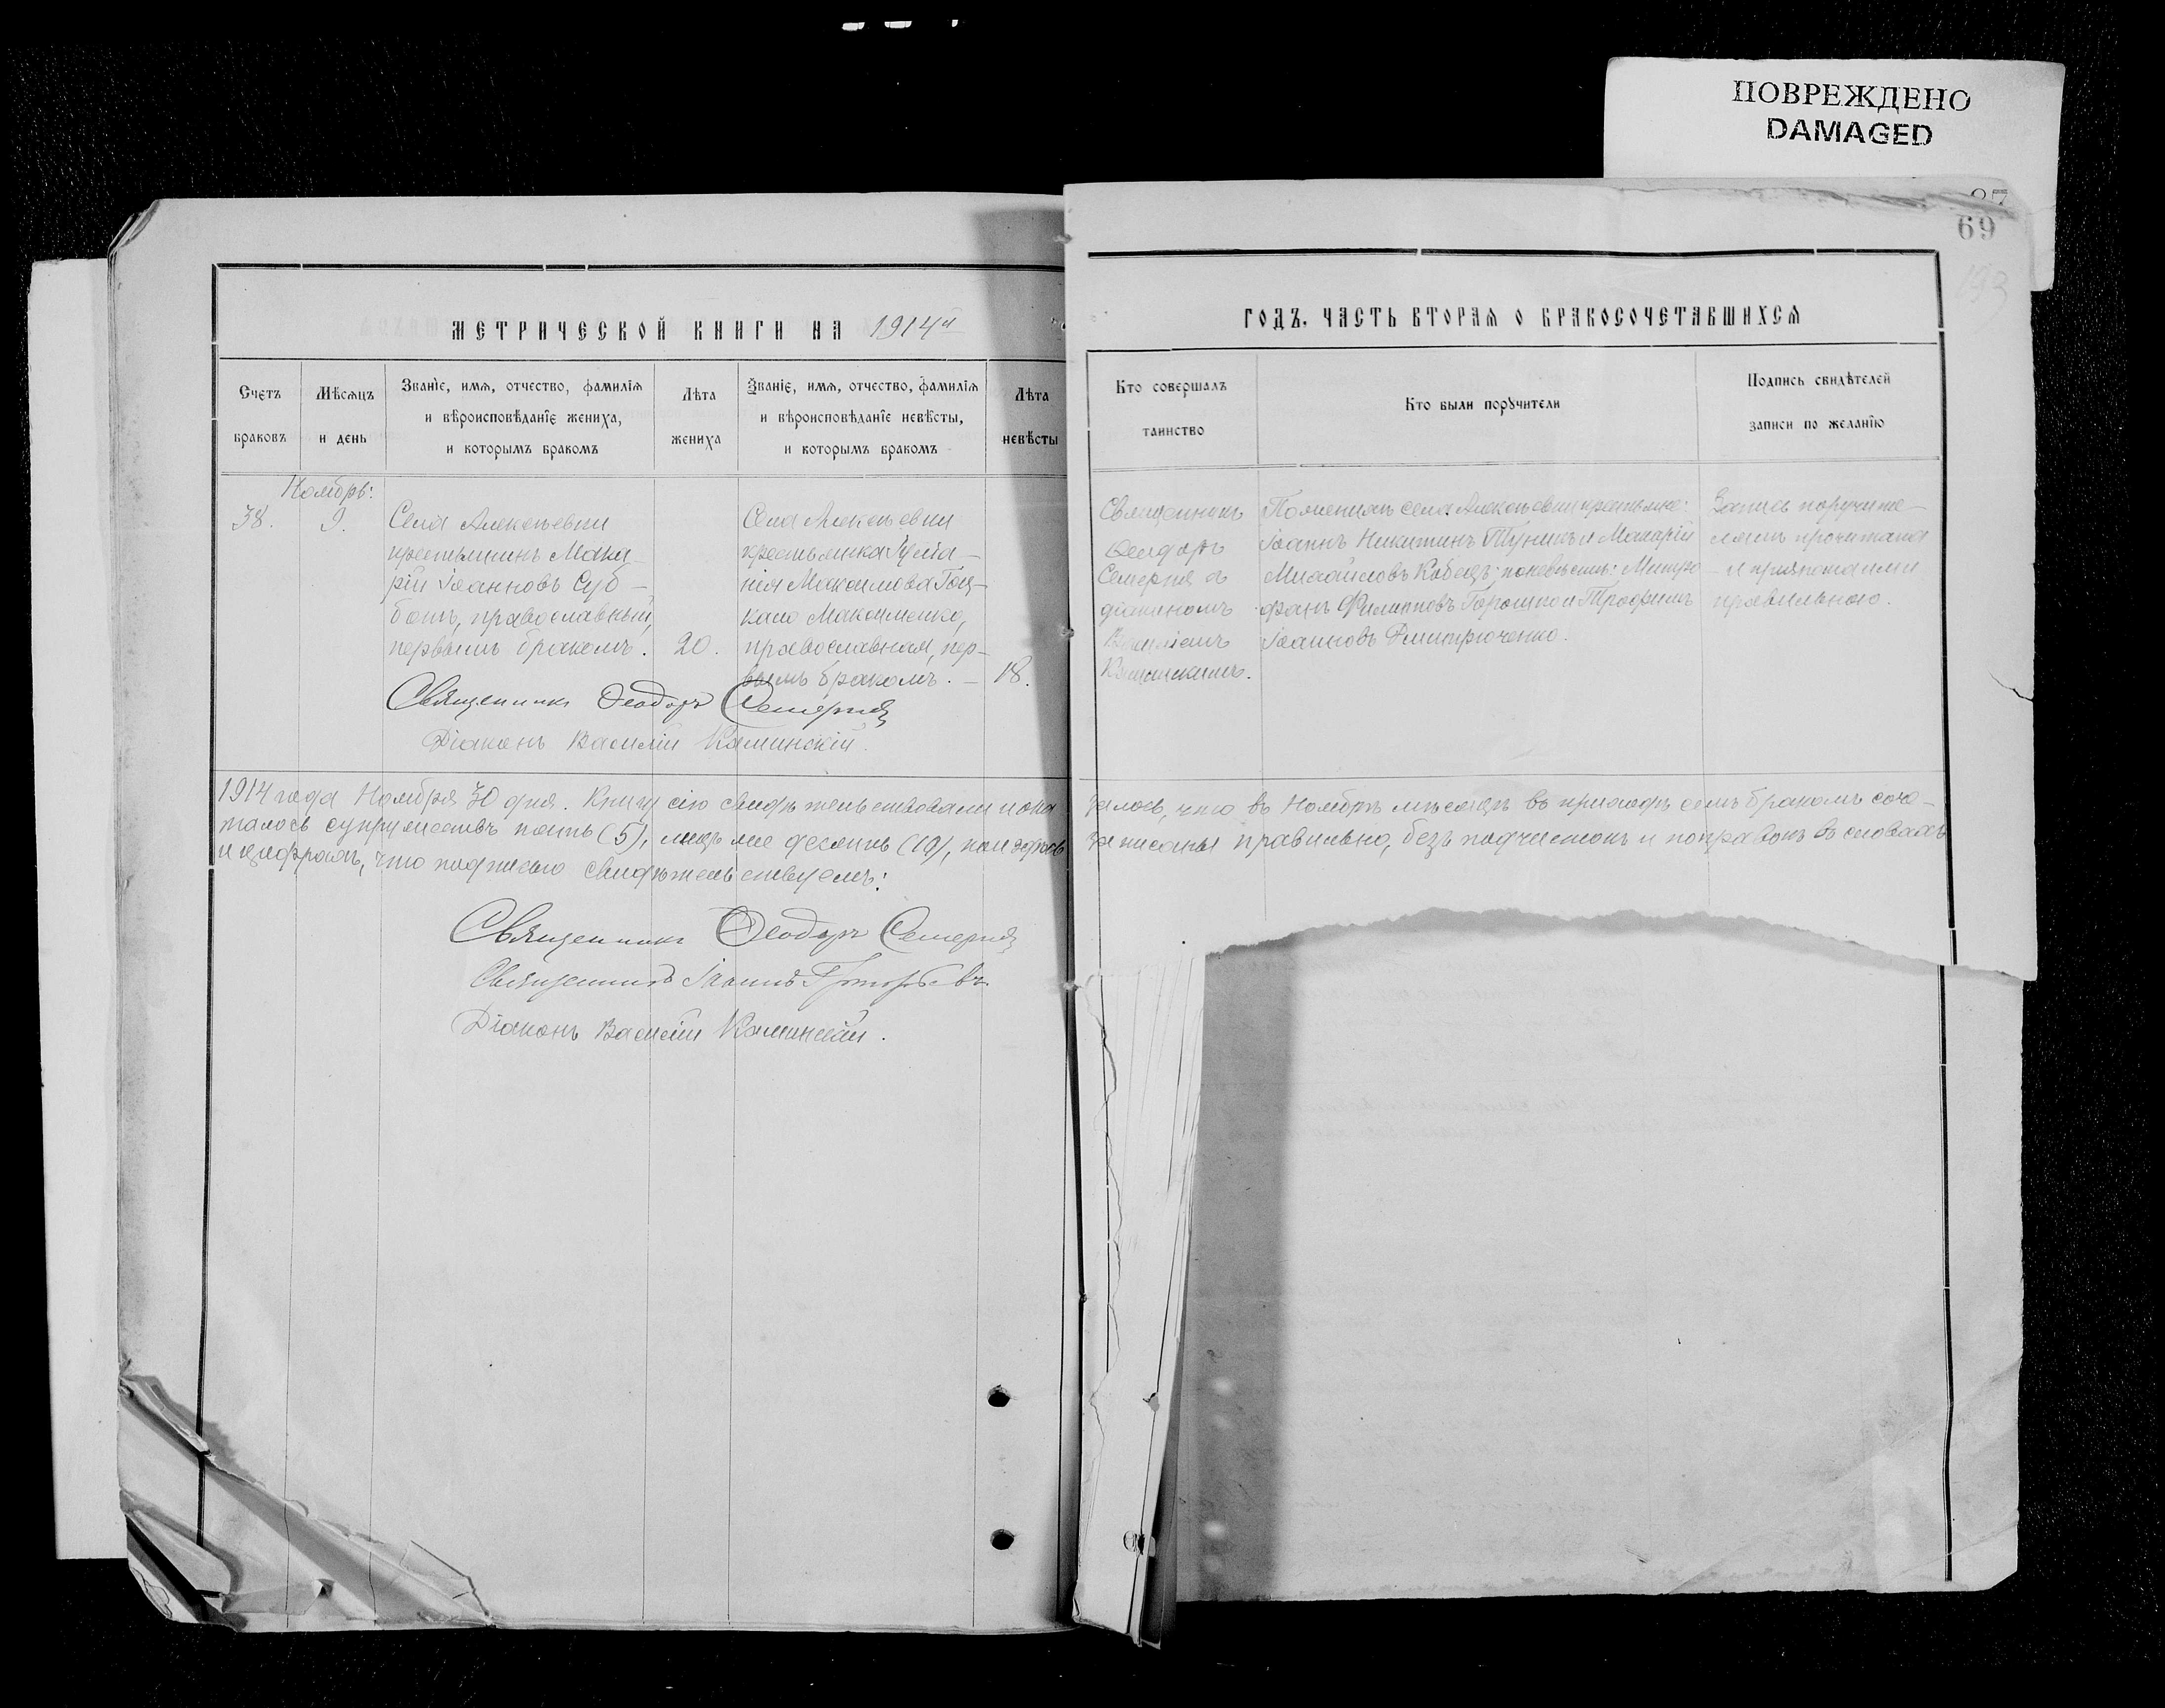 ПОВРЕЖДЕНО
DAMAGED
69
193
МЕТРИЧЕСКОЙ КНИГИ НА 1914й
ГОДЪ, ЧАСТЬ ВТОРАѦ О БРАКОСОЧЕТАВШИХСѦ
Счетъ
браковъ
Мѣсѧцъ
и день
Званїе, имѧ, отчество, фамилїѧ
и вѣроисповѣданїе жениха,
и которымъ бракомъ
Лѣта
жениха
Званїе, имѧ, отчество, фамилїѧ
и вѣроисповѣданїе невѣсты,
и которымъ бракомъ
Лѣта
невѣсты
Кто совершалъ
таинство
Кто были порꙋчители
Подпись свидѣтелей
записи по желанїю
Ноябрь:
38.
9.
Села Алексѣевки
крестьянинъ Мака-
рій Іоанновъ Суб-
ботъ, православный,
первымъ бракомъ.
20.
Села Алексѣевки
крестьянка
Максимова
Максименко,
православная, пер-
вымъ бракомъ. –
18.
Священникъ
Ѳеодоръ
Семерня съ
діакономъ
Василіемъ
Каминскимъ.
По женихѣ села Алексѣевки крестьяне:
Іоаннъ Никитинъ Туникъ и Макарій
Михайловъ Кобецъ; по невѣстѣ: Митро
фанъ Филипповъ Горошко и Трофимъ
Іоанновъ Дмитрюченко.
Запись поручите-
лямъ прочитана
и признана ими
правильною.
Священникъ Ѳеодоръ Семерня
Діаконъ Василій Каминскій.
1914 года Ноября 30 дня. Книгу сію свидѣтельствовали и ока
залось, что въ Ноябрѣ мѣсяцѣ въ приходѣ семъ бракомъ соче-
талось супружествъ пять (5), лицъ же десять (10),
записаны правильно, безъ подчистокъ и поправокъ въ словахъ
и цифрахъ, что подписью свидѣтельствуемъ:
Священникъ Ѳеодоръ Семерня
Священникъ Іоаннъ Григорьевъ
Діаконъ Василій Каминскій.